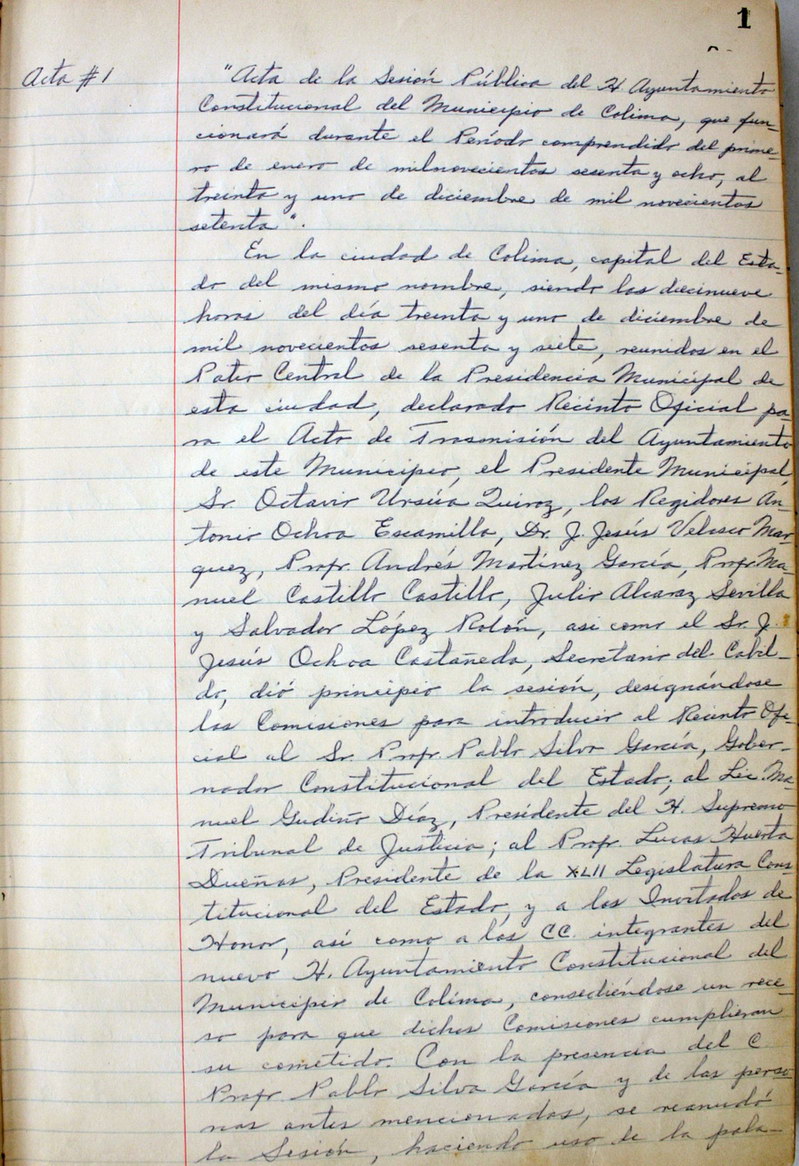 1
Acta #1
"Acta de la Sesión Pública del H Ayuntamiento
Constitucional del Municipio de Colima, que fun-
cionará durante el Período comprendido del prime-
ro de enero de milnovecientos sesenta y ocho, al
treinta y uno de diciembre de mil novecientos
setenta".
En la ciudad de Colima, capital del Esta-
do del mismo nombre, siendo las diecinueve
horas del día treinta y uno de diciembre de
mil novecientos sesenta y siete, reunidos en el
Patio Central de la Presidencia Municipal de
esta ciudad, declarado Recinto Oficial pa-
ra el Acto de Trasmisión del Ayuntamiento
de este Municipio, el Presidente Municipal,
Sr. Octavio Ursúa Quiroz, los Regidores An-
tonio Ochoa Escamilla, Dr. J. Jesús Velasco Mar-
quez, Profr. Andrés Martínez García, Profr. Ma-
nuel Castillo Castillo, Julio Alcaraz Sevilla
y Salvador López Rolón, asi como el Sr. J.
Jesús Ochoa Castañeda, Secretario del Cabil-
do, dió principio la sesión, designándose
las Comisiones para introducir al Recinto Ofi-
cial al Sr. Profr. Pablo Silva García, Gober-
nador Constitucional del Estado, al Lic. Ma-
nuel Gudiño Díaz, Presidente del H. Supremo
Tribunal de Justicia; al Profr. Lucas Huerta
Dueñas, Presidente de la XLII Legislatura Cons
titucional del Estado, y a los Invitados de
Honor, así como a los CC. integrantes del
nuevo H. Ayuntamiento Constitucional del
Municipio de Colima, consediéndose un rece-
so para que dichas Comisiones cumplieran
su cometido. Con la presencia del C.
Profr. Pablo Silva García y de las perso-
nas antes mencionadas, se reanudó
la Sesión, haciendo uso de la pala-